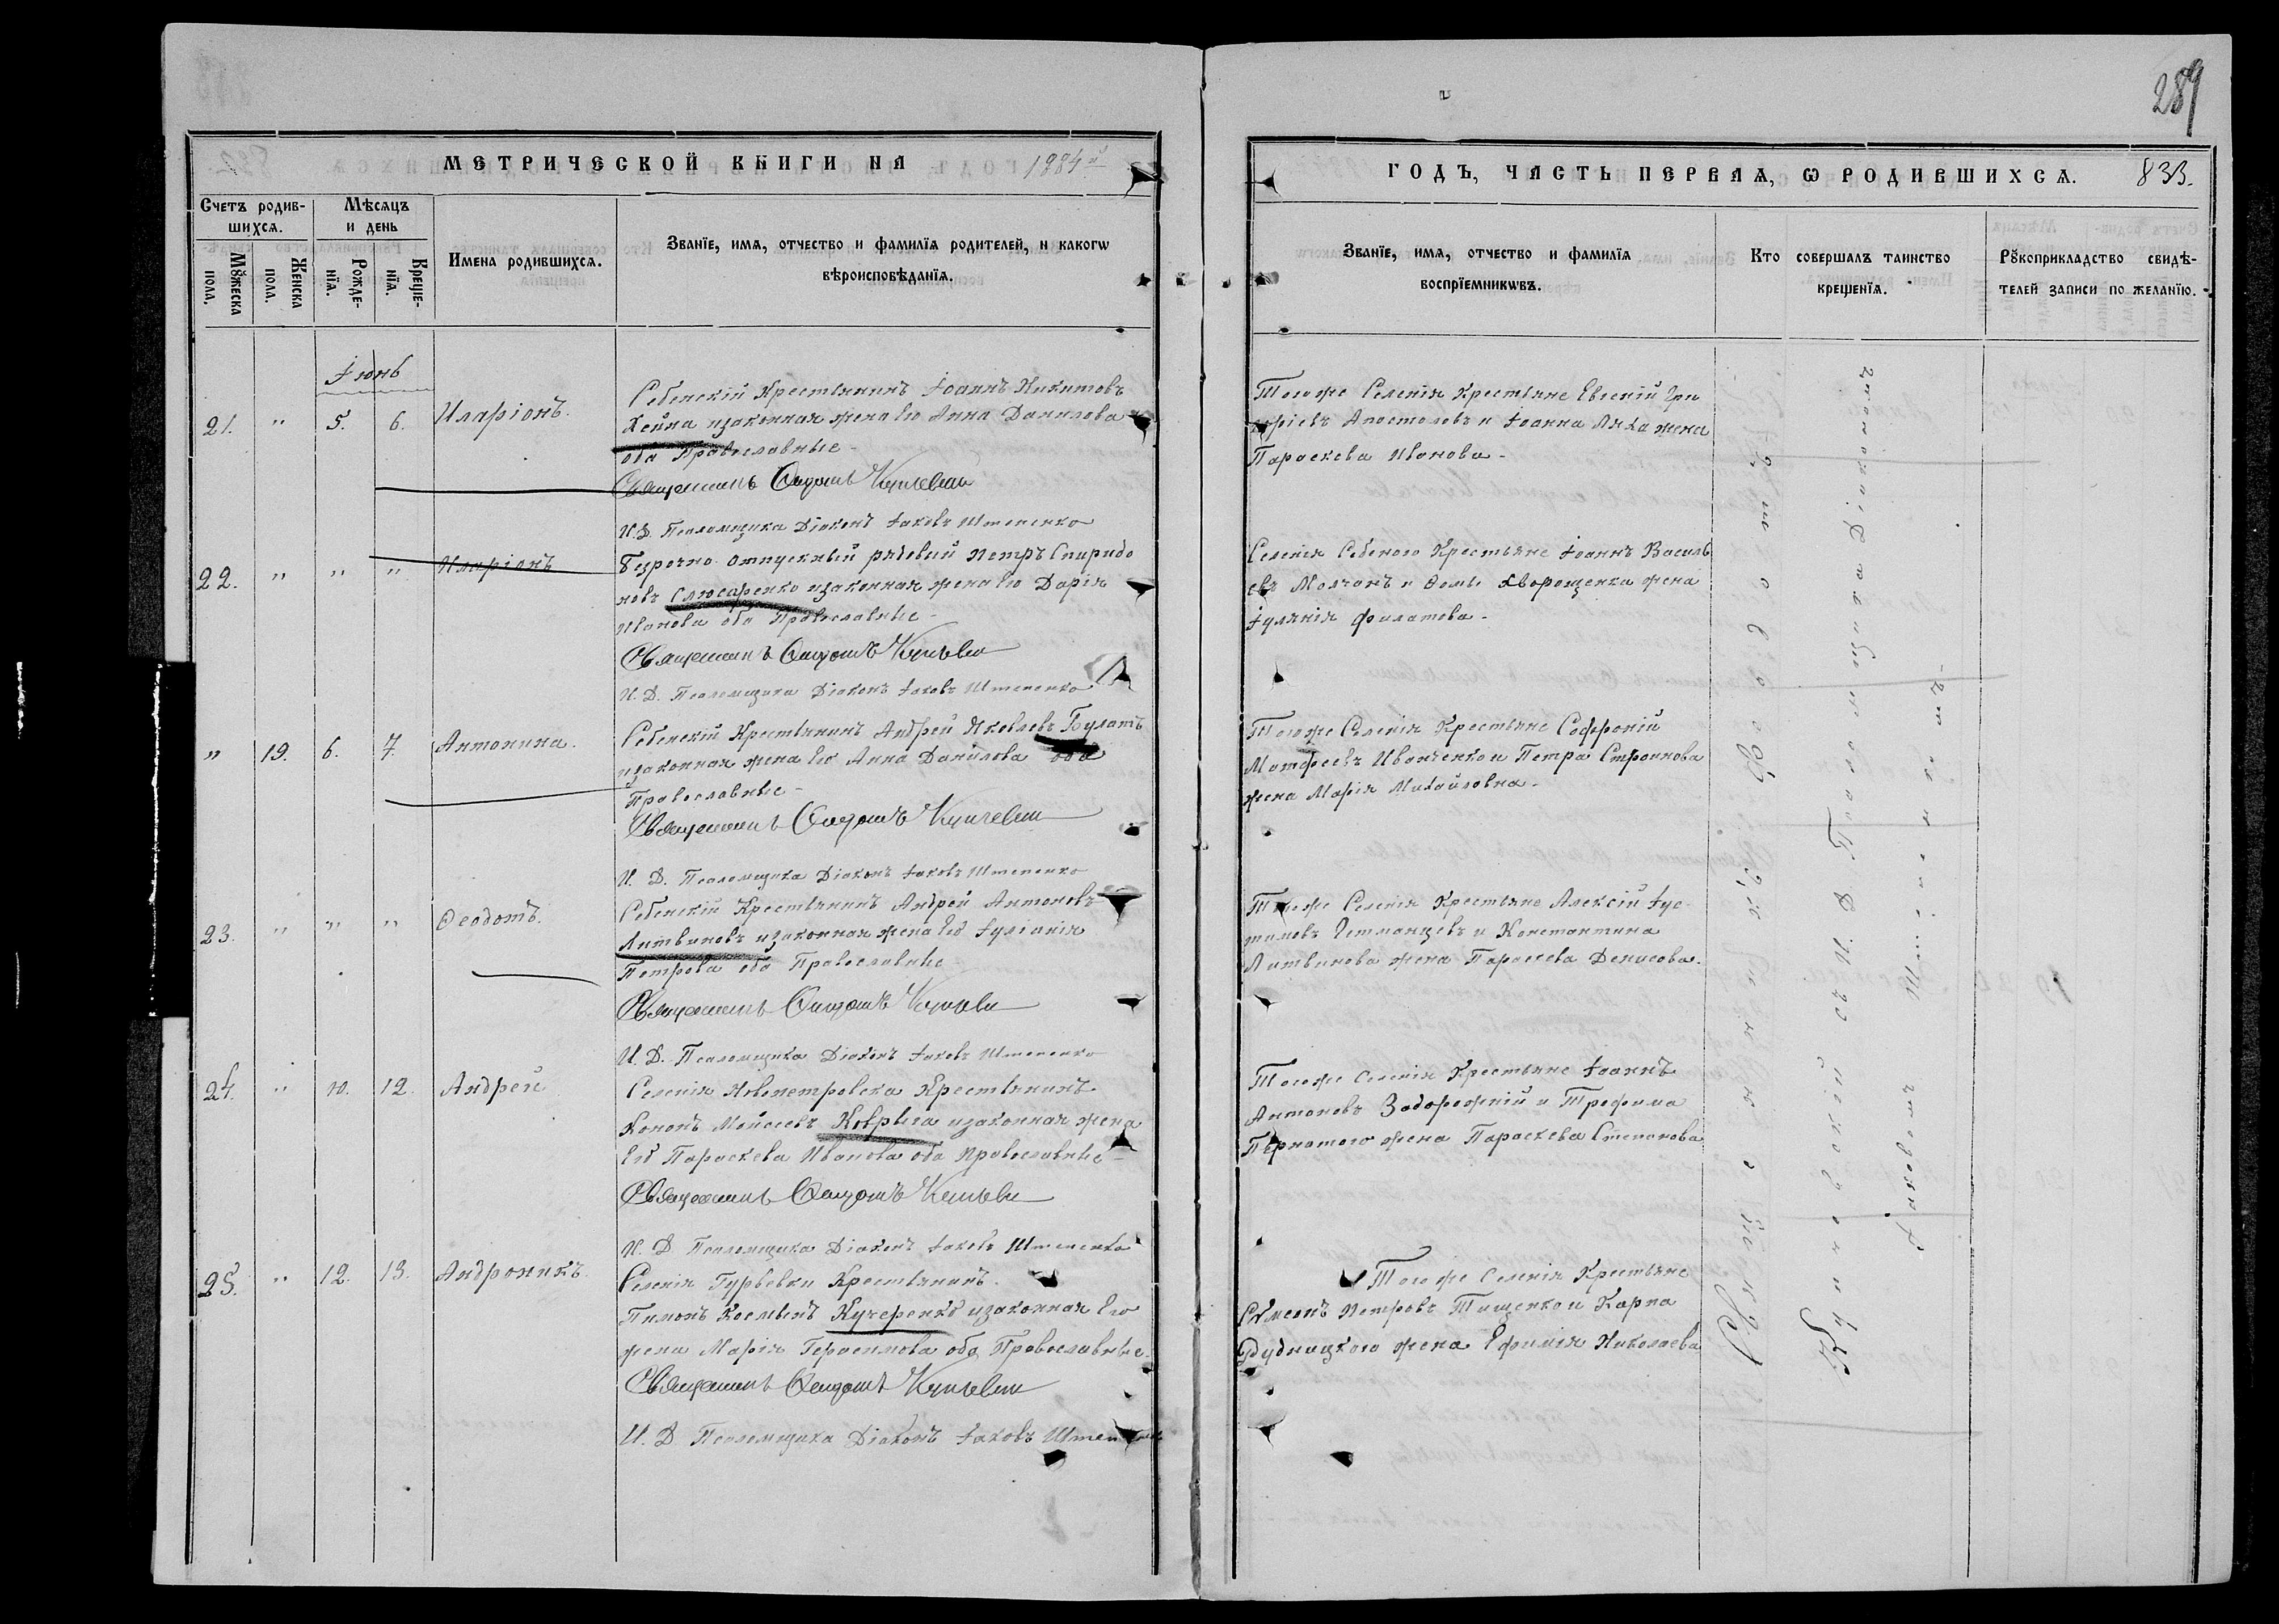 289
МЕТРИЧЕСКОЙ КНИГИ НА 1884й
ГОДЪ, ЧАСТЬ ПЕРВАЯ, Ѡ РОДИВШИХСѦ. 833.
Счетъ родив-
шихсѧ.
Мѣсѧцъ
и день
Мꙋжеска
пола.
Женска
пола.
Рожде-
нїѧ.
Креще-
нїѧ.
Имена родившихсѧ.
Званїе, имѧ, отчество и фамилїѧ родителей, и какогѡ
вѣроисповѣданїѧ.
Званїе, имѧ, отчество и фамилїѧ
воспрїемникѡвъ.
Кто совершалъ таинство
крещенїѧ.
Рꙋкоприкладство свидѣ-
телей записи по желанїю.
Іюнь
21. " 5. 6. Иларіонъ.
Себенскій Крестьянинъ Іоаннъ Никитовъ
Хейна изаконная жена Его Анна Данилова
оба Православные -
Священникъ
И. Д. Псаломщика Діаконъ Іаковъ Штепенко
Тогоже Селенія Крестьяне Евгеній Гри
горіевъ Апостоловъ и Іоанна жена
Параскева Иванова -
22. " " " Иларіонъ
Безрочно отпускный рядовый Петръ Спиридо
новъ Слюсаренко изаконная жена Его Дарія
Иванова оба Православные -
Священникъ
И. Д. Псаломщика Діаконъ Іаковъ Штепенко
Селенія Себеного Крестьяне Іоаннъ Василь
евъ Молчанъ и Ѳомы Хворощенка жена
Іулянія Филатова -
" 19. 6. 7. Антонина.
Себенскій Крестьянинъ Андрей Яковлевъ Булатъ
изаконная жена Его Анна Данилова оба
Православные -
Священникъ
И. Д. Псаломщика Діаконъ Іаковъ Штепенко
Тогоже Селенія Крестьяне Софроній
Матфеевъ Иванченко и Петра Строинова
жена Марія Михайловна -
23. " " " Ѳеодотъ.
Себенскій Крестьянинъ Андрей Антоновъ
Литвиновъ изаконная жена Его Іуліанія
Петрова оба Православные
Священникъ
И. Д. Псаломщика Діаконъ Іаковъ Штепенко
Тогоже Селенія Крестьяне Алексій Іус
тиновъ Гетманцевъ и Константина
Литвинова жена Параскева Денисова.
24. " 10. 12. Андрей
Селенія Новопетровска Крестьянинъ
Кононъ Мойсеевъ Коврыга изаконная жена
Его Параскева Иванова оба Православные -
Священникъ
И. Д. Псаломщика Діаконъ Іаковъ Штепенко
Тогоже Селенія Крестьяне Іоаннъ
Антоновъ Задорожній и Трофима
Пернатого жена Параскева Степанова
25. " 12. 13. Андроникъ.
Селенія Гурьевки Крестьянинъ
Пимонъ Косминъ Кучеренко изаконная Его
жена Марія Герасимова оба Православные.
Священникъ
И. Д. Псаломщика Діаконъ Іаковъ
Тогоже Селенія Крестьяне
Симеонъ Петровъ Тищенко и Карпа
Рудницкого жена Ефимія Николаева
съ И. Д. Псаломщика Діакономъ
Іаковомъ